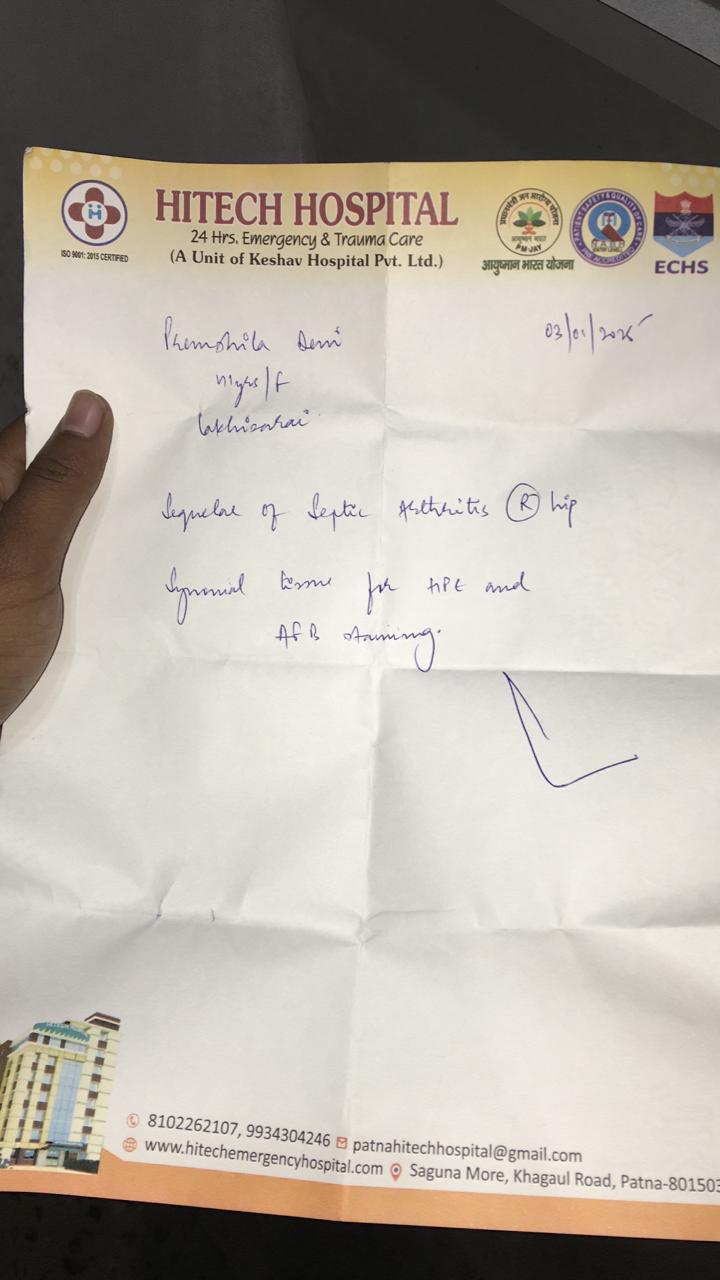 HITECH HOSPITAL
24 Hrs. Emergency & Trauma Care
(A Unit of Keshav Hospital Pvt. Ltd.)
ISO 9001: 2015 CERTIFIED
प्रधानमंत्री जन आरोग्य योजना
PM-JAY
आयुष्मान भारत योजना
ECHS
03/01/2025
Premshila Devi
/F
Lakhisarai
Sequelae of Septic Arthritis R hip
Synovial tissue for HPE and
AFB staining.
8102262107, 9934304246 patnahitechhospital@gmail.com
www.hitechemergencyhospital.com Saguna More, Khagaul Road, Patna-801503